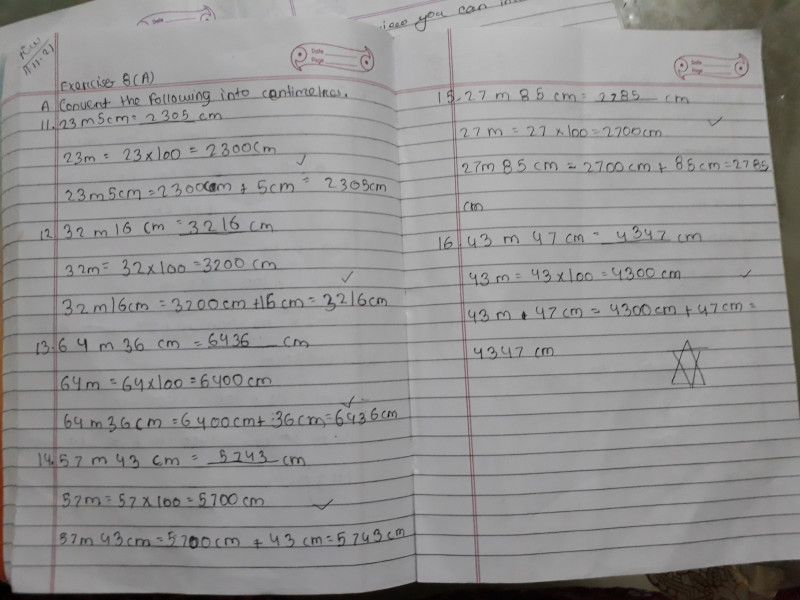 iece you can in
Date
Page
Exercise 8(A)
A. Convert the following into centimetres.
11. 23m5cm = 2305 cm
23m = 23×100 = 2300cm
23m5cm = 2300cm + 5cm = 2305cm
12. 32 m 16 cm = 3216 cm
32m = 32×100 = 3200 cm
32m16cm = 3200cm + 16 cm = 3216cm
13. 64 m 36 cm = 6436 cm
64m = 64×100 = 6400cm
64m36cm = 6400cm + 36cm = 6436cm
14. 57 m 43 cm = 5743 cm
57m = 57×100 = 5700cm
57m 43cm = 5700cm + 43 cm = 5743cm
Date
Page
15. 27 m 85 cm = 2785 cm
27 m = 27×100 = 2700cm
27m 85 cm = 2700cm + 85cm = 2785
cm
16. 43 m 47 cm = 4347 cm
43m = 43×100 = 4300cm
43m + 47cm = 4300cm + 47cm =
4347 cm